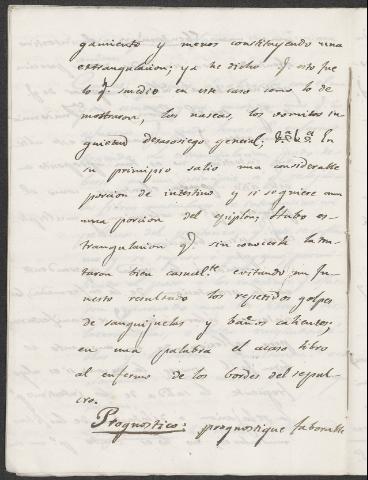 gamiento y menos constituyendo una
extrangulacion; ya he dicho q. esto fue
lo q. sucedio en este caso como lo de-
mostraron, los nauseas, los vomitos in-
quietud desasosiego general; &ª &ª En
su principio salio una considerable
porcion de intestino y si se quiere aun
una porcion del epiplon; Hubo es-
trangulacion q. sin conocerla la tra-
taron bien casualte. evitando un fu-
nesto resultado los repetidos golpes
de sanguijuelas y baños calientes;
en una palabra el acaso libro
al enfermo de los bordes del sepul-
cro.
Prognostico: prognostique faborable